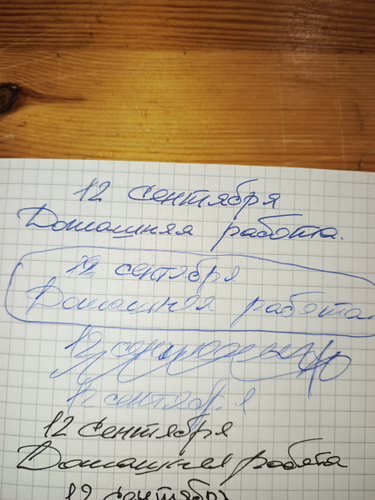 12 сентября
Домашняя работа.
12 сентября
Домашняя работа.
12
12 сентября
12 сентября
Домашняя работа
12 сентябр